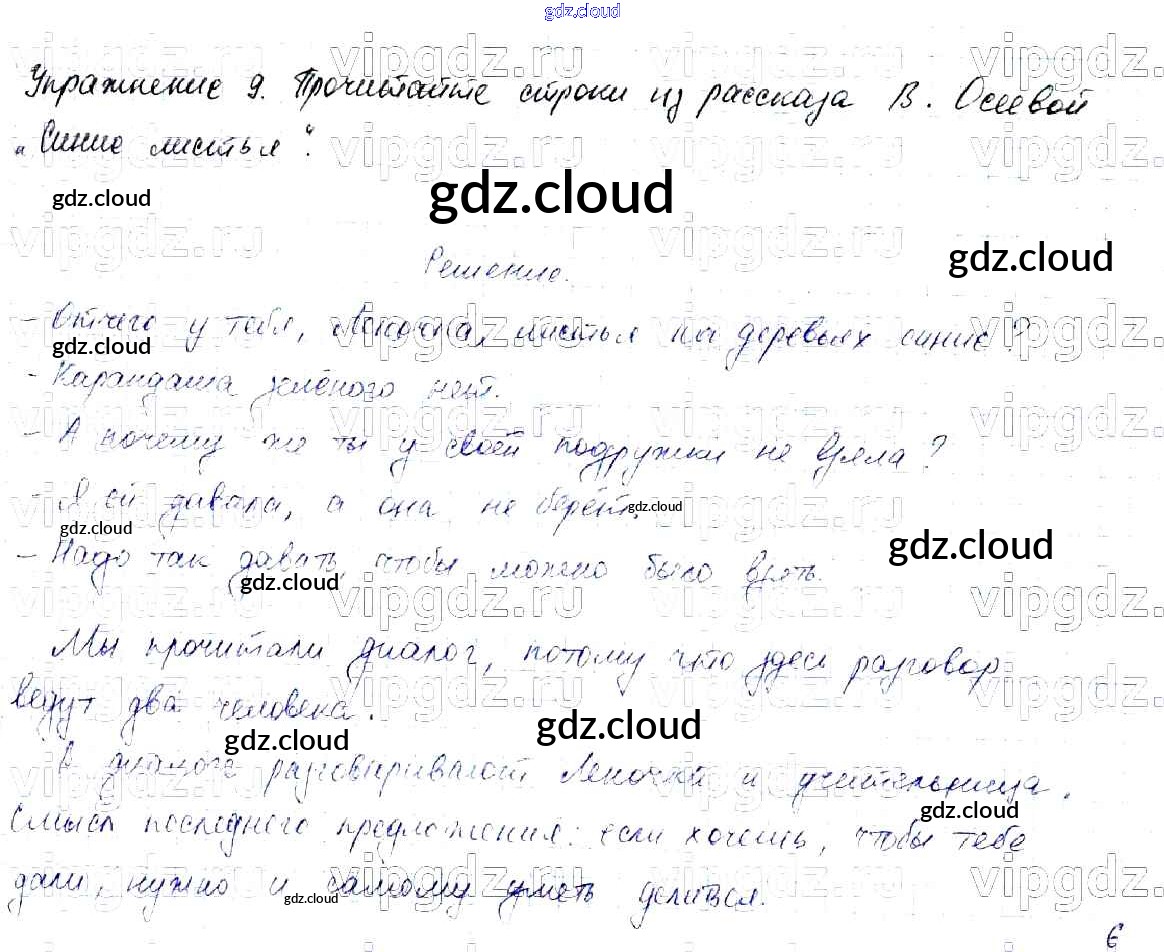 gdz.cloud
Упражнение 9. Прочитайте строки из рассказа В. Осеевой
„Синие листья“.
gdz.cloud gdz.cloud
gdz.cloud
Решение.
- Отчего у тебя, Леночка, листья на деревьях синие?
gdz.cloud
- Карандаша зелёного нет.
- А почему же ты у своей подружки не взяла?
- Я ей давала, а она не берёт.
gdz.cloud gdz.cloud
- Надо так давать чтобы можно было взять.
gdz.cloud gdz.cloud
Мы прочитали диалог, потому что здесь разговор
ведут два человека.
gdz.cloud gdz.cloud
В диалоге разговаривают Леночка и учительница.
gdz.cloud
Смысл последнего предложения: если хочешь, чтобы тебе
дали, нужно и самому уметь делиться.
gdz.cloud
6
vipgdz.ru